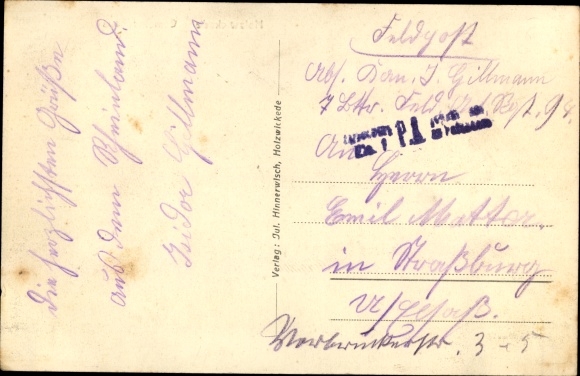 Die herzlichsten Grüße
aus dem Rheinland.
Isidor Gillmann
Verlag: Jul. Hinnerwisch, Holzwickede
Feldpost
Abs. Kan. I. Gillmann
7 Bttr. Feld. Art. Rgt. 94.
An
Herrn
Emil Metter.
in Straßburg
i/Elsaß.
Vorbruckerstr. 3-5